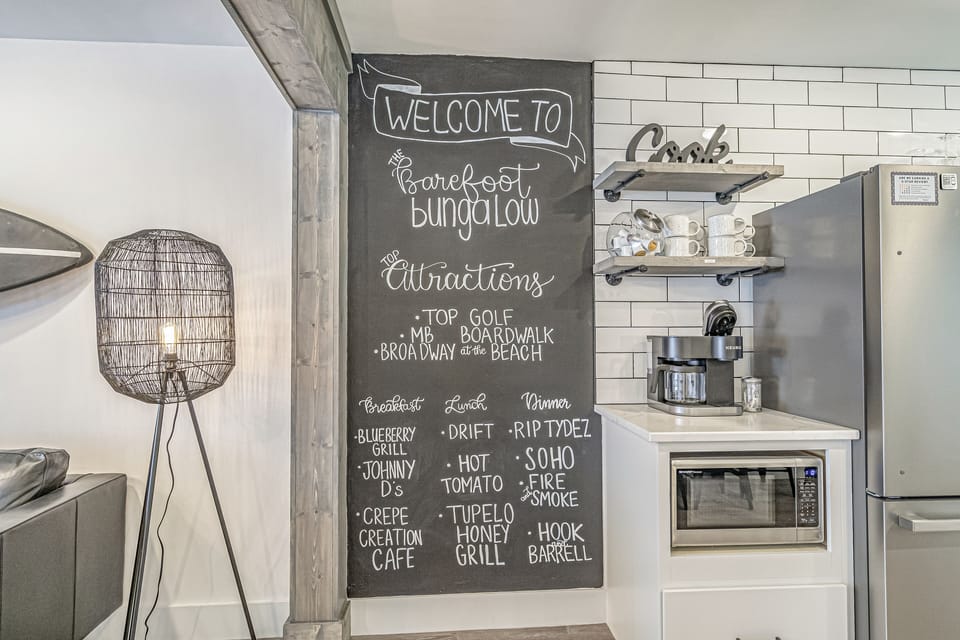 WELCOME TO
THE
Barefoot
bungalow
TOP
Attractions
• TOP GOLF
• MB BOARDWALK
• BROADWAY at the BEACH
Breakfast
• BLUEBERRY
GRILL
• JOHNNY
D's
• CREPE
CREATION
CAFE
Lunch
• DRIFT
• HOT
TOMATO
• TUPELO
HONEY
GRILL
Dinner
• RIP TYDEZ
• SOHO
• FIRE
and SMOKE
• HOOK
and
BARRELL
Cook
KEURIG